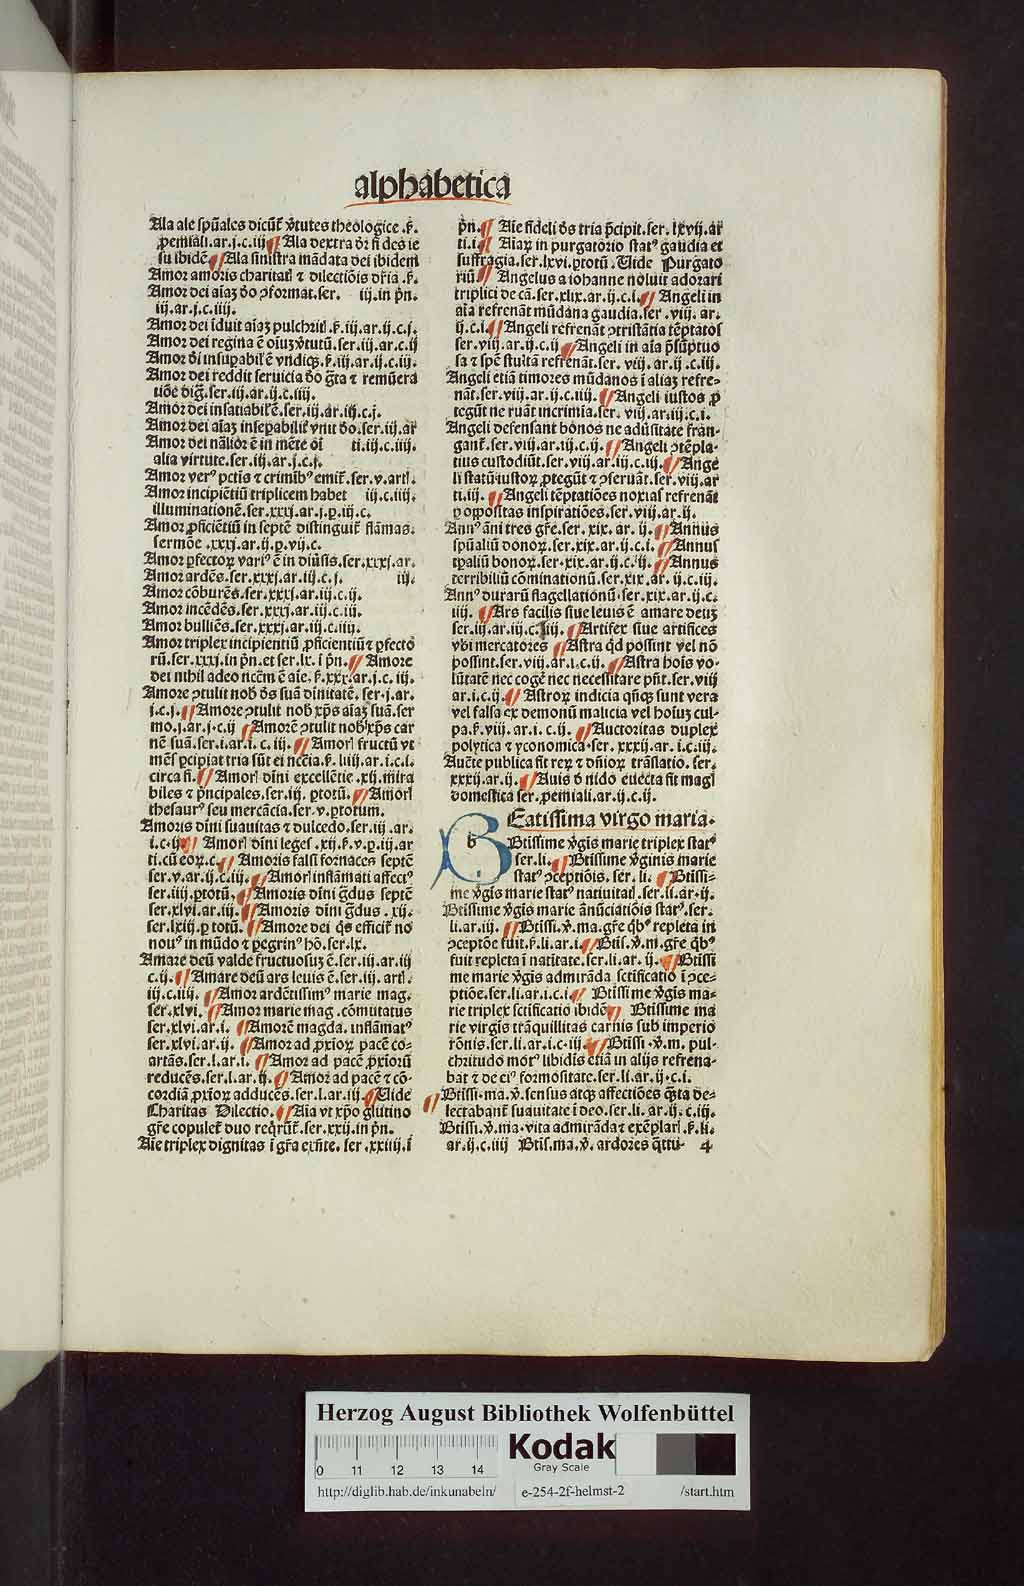 alphabetica
Ala ale spũales dicũt v̾tutes theologice .ẜ.
ꝓemiali.ar.j.c.iij ¶ Ala dextra dr̃ fides ie
su ibidẽ ¶ Ala sinistra mãdata dei ibidem
Amor amoris charitatꝭ ⁊ dilectiõis dr̃ia .ẜ.
Amor dei aĩaꝫ dõ ꝯformat.ser. iij.in pñ.
iij.ar.j.c.iiij.
Amor dei ĩduit aĩaꝫ pulchritꝭ ẜ.iij.ar.ij.c.j.
Amor dei regina ẽ oĩuꝫ v̾tutũ.ser.iij.ar.c.ij
Amor dei insuꝑabilꝭ ẽ vndicꝫ.ẜ.iij.ar.ij.c.iij.
Amor dei reddit seruicia dõ gr̃ta ⁊ remũera
tiõe dig̃.ser.iij.ar.ij.c.iiij.
Amor dei insatiabilꝭ ẽ.ser.iij.ar.iij.c.j.
Amor dei aĩaꝫ inseꝑabilꝭ vnit dõ.ser.iij.ar
Amor dei nãlior ẽ in mẽte oĩ ti.iij.c.iiij.
alia virtute.ser.iij.ar.j.c.j.
Amor verꝰ pctis ⁊ crimibꝰ emit.ser.v.artꝭ.
Amor incipiẽtiũ triplicem habet iij.c.iiij.
illuminationẽ.ser.xxxj.ar.j.ꝑ.iij.c.
Amor ꝓficiẽtiũ in septẽ distinguit flãmas.
sermõe .xxxj.ar.ij.ꝑ.vij.c.
Amor ꝑfectoꝝ variꝰ ẽ in diũsis.ser.xxxj.ar.
Amor ardẽs.ser.xxxj.ar.iij.c.j. iij.
Amor cõburẽs.ser.xxxj.ar.iij.c.ij.
Amor incẽdẽs.ser.xxxj.ar.iij.c.iij.
Amor bulliẽs.ser.xxxj.ar.iij.c.iiij.
Amor triplex incipientiũ ꝓficientiũ ⁊ ꝑfecto
rũ.ser.xxxj.in pñ.et ser.lx.ĩ pñ. ¶ Amore
dei nihil adeo ncẽm ẽ aĩe.ẜ.xxx.ar.j.c.iij.
Amore ꝯtulit nob̾ dñs suã diuinitatẽ.ser.j.ar.
j.c.j. ¶ Amore ꝯtulit nob̾ xp̃s aĩaꝫ suã.ser
mo.j.ar.j.c.ij ¶ Amorẽ ꝯtulit nob̾ xp̃s car
nẽ suã.ser.i.ar.i.c.iij. ¶ Amorꝭ fructũ vt
mẽs ꝑcipiat tria sũt ei nccĩa.ẜ.liiij.ar.i.c.i.
circa fi. ¶ Amorꝭ diuini excellẽtie.xij.mira
biles ⁊ prĩncipales.ser.iij.ꝑ totũ. ¶ Amorꝭ
thesaurꝰ seu mercãcia.ser.v.ꝑ totum.
Amoris diuini suauitas ⁊ dulcedo.ser.iij.ar.
i.c.ij. ¶ Amorꝭ diuini leges.xij.ẜ.v.ꝑ.iij.ar
ti.cũ eoꝝ.c. ¶ Amoris falsi fornaces septẽ
ser.v.ar.ij.c.iij. ¶ Amorꝭ inflãmati affectꝰ
ser.iiij.ꝑ totũ. ¶ Amoris diuini gr̃dus septẽ
ser.xlvi.ar.iij. ¶ Amoris diuini gr̃dus .xij.
ser.lxiij.ꝑ totũ. ¶ Amore dei qs efficit hõ
nouꝰ in mũdo ⁊ ꝑegrinꝰ hõ.ser.lx.
Amare deũ valde fructuosuꝫ ẽ.ser.iij.ar.iij
c.ij. ¶ Amare deũ ars leuis ẽ.ser.iij.artꝭ.
iij.c.iiij. ¶ Amor ardẽtissimꝰ marie mag.
ser.xlvi. ¶ Amor marie mag.cõmutatus
ser.xlvi.ar.i. ¶ Amorẽ magda. inflãmatꝰ
ser.xlvi.ar.ij. ¶ Amor ad ꝓxioꝝ pacẽ co-
artãs.ser.l.ar.i. ¶ Amor ad pacẽ ꝓxioꝝ
reducẽs.ser.l.ar.ij. ¶ Amor ad pacẽ ⁊ cõ-
cordiã ꝓxioꝝ adducẽs.ser.l.ar.iij ¶ Vide
Charitas Dilectio. ¶ Aĩa vt xp̃o glutino
gr̃e copulet duo reqrũt.ser.xxij.in pñ.
Aĩe triplex dignitas ĩ gr̃a exñte. ser.xxiiij.ĩ
pñ. ¶ Aĩe fideli dñs tria p̃cipit.ser.lxvij.ar
ti.i. ¶ Aĩaꝝ in purgatorio statꝰ gaudia et
suffragia.ser.lxvi.ꝑ totũ. Vide Purgato
riũ. ¶ Angelus a iohanne noluit adorari
triplici de cã.ser.xlix.ar.ij.c.i. ¶ Angeli in
aĩa refrenãt mũdana gaudia.ser.viij.ar.
ij.c.i. ¶ Angeli refrenãt ꝯtristãtia tẽptatos
ser.viij.ar.ij.c.ij ¶ Angeli in aĩa p̃sũptuo
sa ⁊ spẽ stulta refrenãt.ser. viij.ar.ij.c.iij.
Angeli etiã timores mũdanos ĩ aliaꝫ refre-
nãt.ser.viij.ar.ij.c.iiij. ¶ Angeli iustos ꝓ
tegũt ne ruãt incrimĩa.ser. viij.ar.iij.c.i.
Angeli defensant bonos ne adũsitate fran-
gant.ser.viij.ar.iij.c.ij. ¶ Angeli ꝯtẽpla-
tiuis custodiũt.ser.viij.ar.iij.c.iij. ¶ Ange
li statũ iustoꝝ ꝓtegũt ⁊ ꝯseruãt.ser.viij.ar
ti.iij. ¶ Angeli tẽptatiões noxias refrenãt
ꝑ oppositas inspiratiões.ser.viij.ar.ij.
Annꝰ aĩni tres gr̃e.ser.xix.ar.ij. ¶ Annus
spũaliũ donoꝝ.ser.xix.ar.ij.c.i. ¶ Annus
tꝑaliũ bonoꝝ.ser.xix.ar.ij.c.ij. ¶ Annus
terribiliũ cõminationũ.ser.xix.ar.ij.c.iij.
Annꝰ duraꝝ flagellationũ.ser.xix.ar.ij.c.
iiij. ¶ Ars facilis siue leuis ẽ amare deuꝫ
ser.iij.ar.iij.c.iiij. ¶ Artifex siue artifices
vbi mercatores ¶ Astra qd possint vel nõ
possint.ser.viij.ar.i.c.ij. ¶ Astra hoĩs vo-
lũtatẽ nec cogẽ nec necessitare pñt.ser.viij
ar.i.c.ij. ¶ Astroꝝ indicia qñqꝫ sunt vera
vel falsa ex demonũ malicia vel hoĩuꝫ cul-
pa.ẜ.viij.ar.i.c.ij. ¶ Auctoritas duplex
polytica ⁊ yconomica.ser.xxxij.ar.i.c.iij.
Auctẽ publica fit reꝝ ⁊ dñioꝝ trãslatio.ser.
xxxij.ar.ij. ¶ Auis õ nido euecta fit magꝭ
domestica ser.ꝓemiali.ar.ij.c.ij.
BEatissima virgo maria.
Btissime v̾gis marie triplex statꝰ
ser.li. ¶ Btissime v̾ginis marie
statꝰ ꝯceptiõis. ser. li. ¶ Btissi-
me v̾gis marie statꝰ natiuitatꝭ.ser.li.ar.ij.
Btissime v̾gis marie ãnũciatiõis statꝰ.ser.
li.ar.iij. ¶ Btissi.v̾.ma.gr̃e qbꝰ repleta in
ꝯceptõe fuit.ẜ.li.ar.i. ¶ Btis̃.v̾.m.gr̃e qbꝰ
fuit repleta ĩ natĩtate.ser.li.ar.ij. ¶ Btissi
me marie v̾gis admirãda scĩficatio ĩ ꝯce-
ptiõe.ser.li.ar.i.c.i ¶ Btissime v̾gis ma-
rie triplex scĩficatio ibidẽ ¶ Btissime ma
rie virgis trãquillitas carnis sub imperio
rõnis.ser.li.ar.i.c.ij. ¶ Btissi.v̾.m. pul-
chritudo motꝰ libidĩs etiã in alijs refrena-
bat ⁊ de eiꝰ formositate.ser.li.ar.ij.c.i.
¶ Btissi.ma.v̾.sensus atqꝫ affectiões qr̃ta de-
lectabant suauitate ĩ deo.ser.li.ar.ij.c.iij.
Btissi.v̾.ma.vita admirãda ⁊ exẽplarꝭ.ẜ.li.
ar.ij.c.iiij Btis̃.ma.v̾. ardores q̃ttu- 4
Herzog August Bibliothek Wolfenbüttel
0 11 12 13 14
Kodak
Gray Scale
http://diglib.hab.de/inkunabeln/ e-254-2f-helmst-2 /start.htm